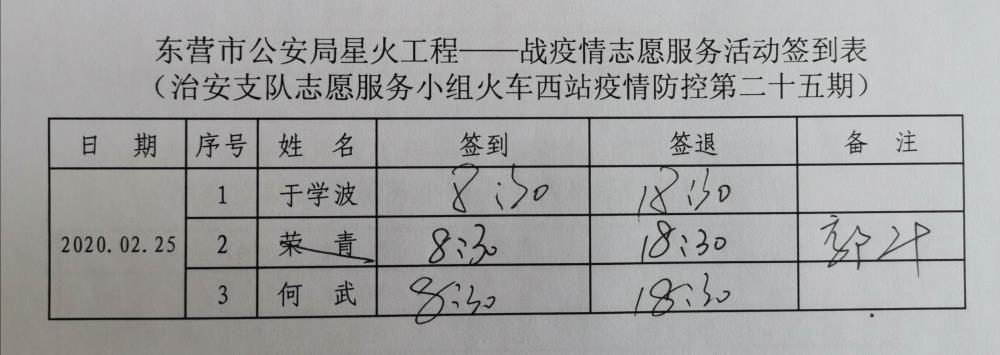 东营市公安局星火工程——战疫情志愿服务活动签到表
（治安支队志愿服务小组火车西站疫情防控第二十五期）
日 期 序号 姓 名 签到 签退 备 注
1 于学波 8:30 18:30
2020.02.25 2 荣 青 8:30 18:30
3 何 武 8:30 18:30